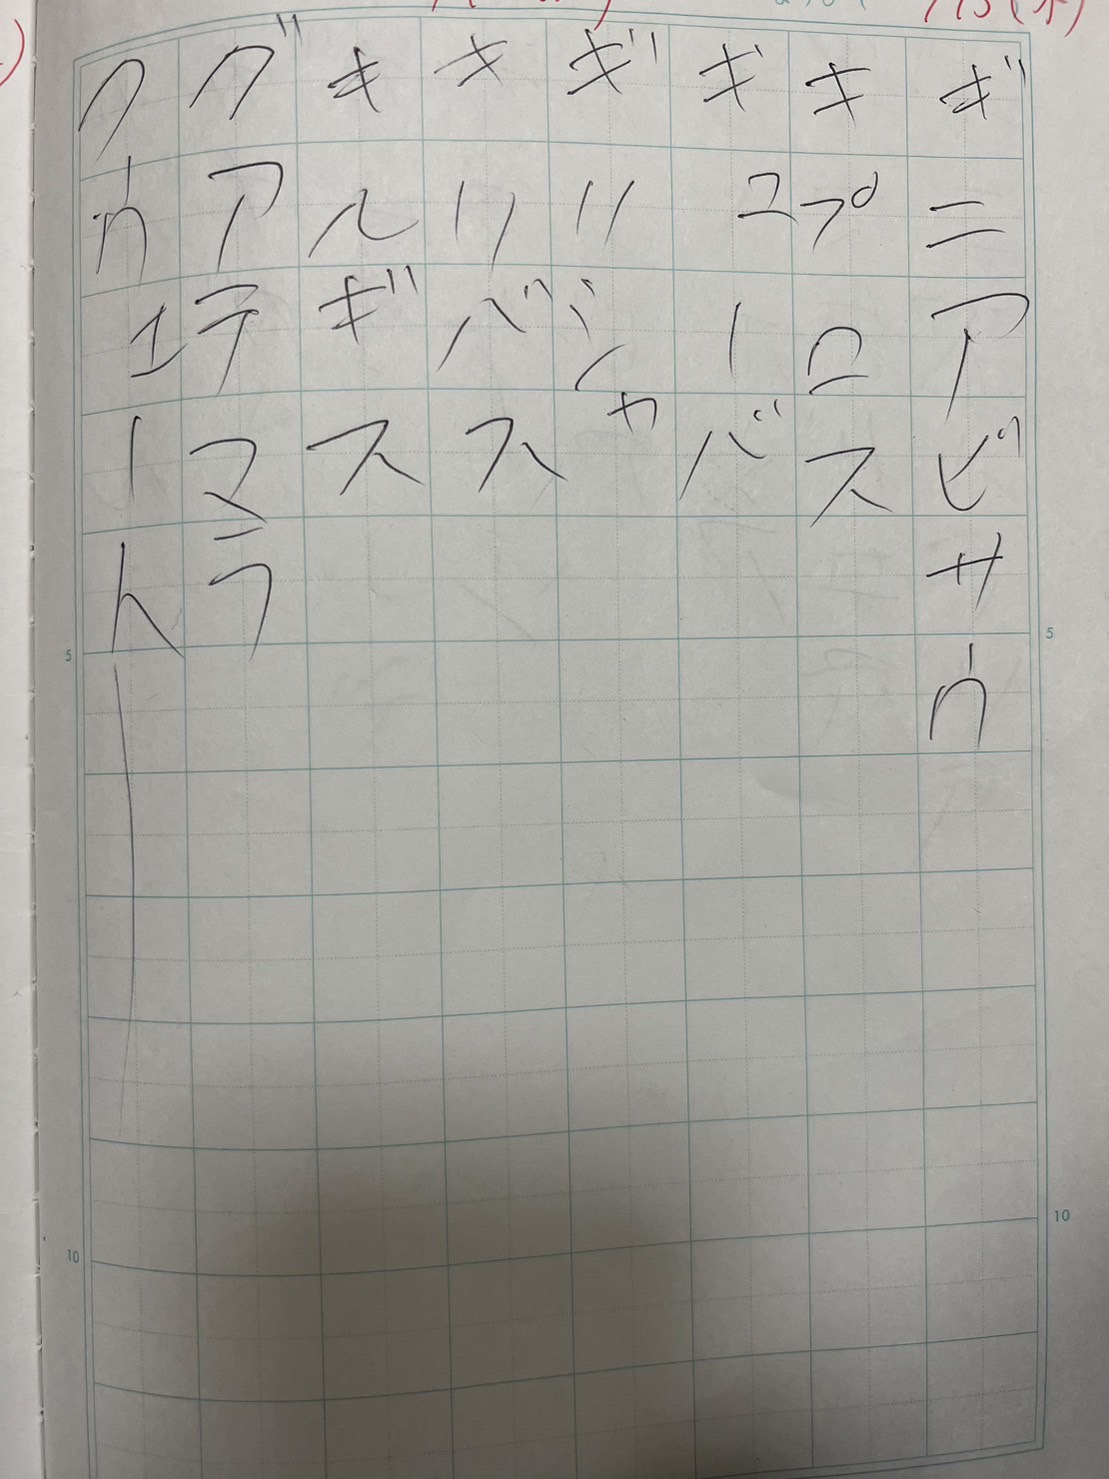 ギニアビサウ
キプロス
ギューバ
ギリシャ
キリバス
キルギス
グアテマラ
クウェート